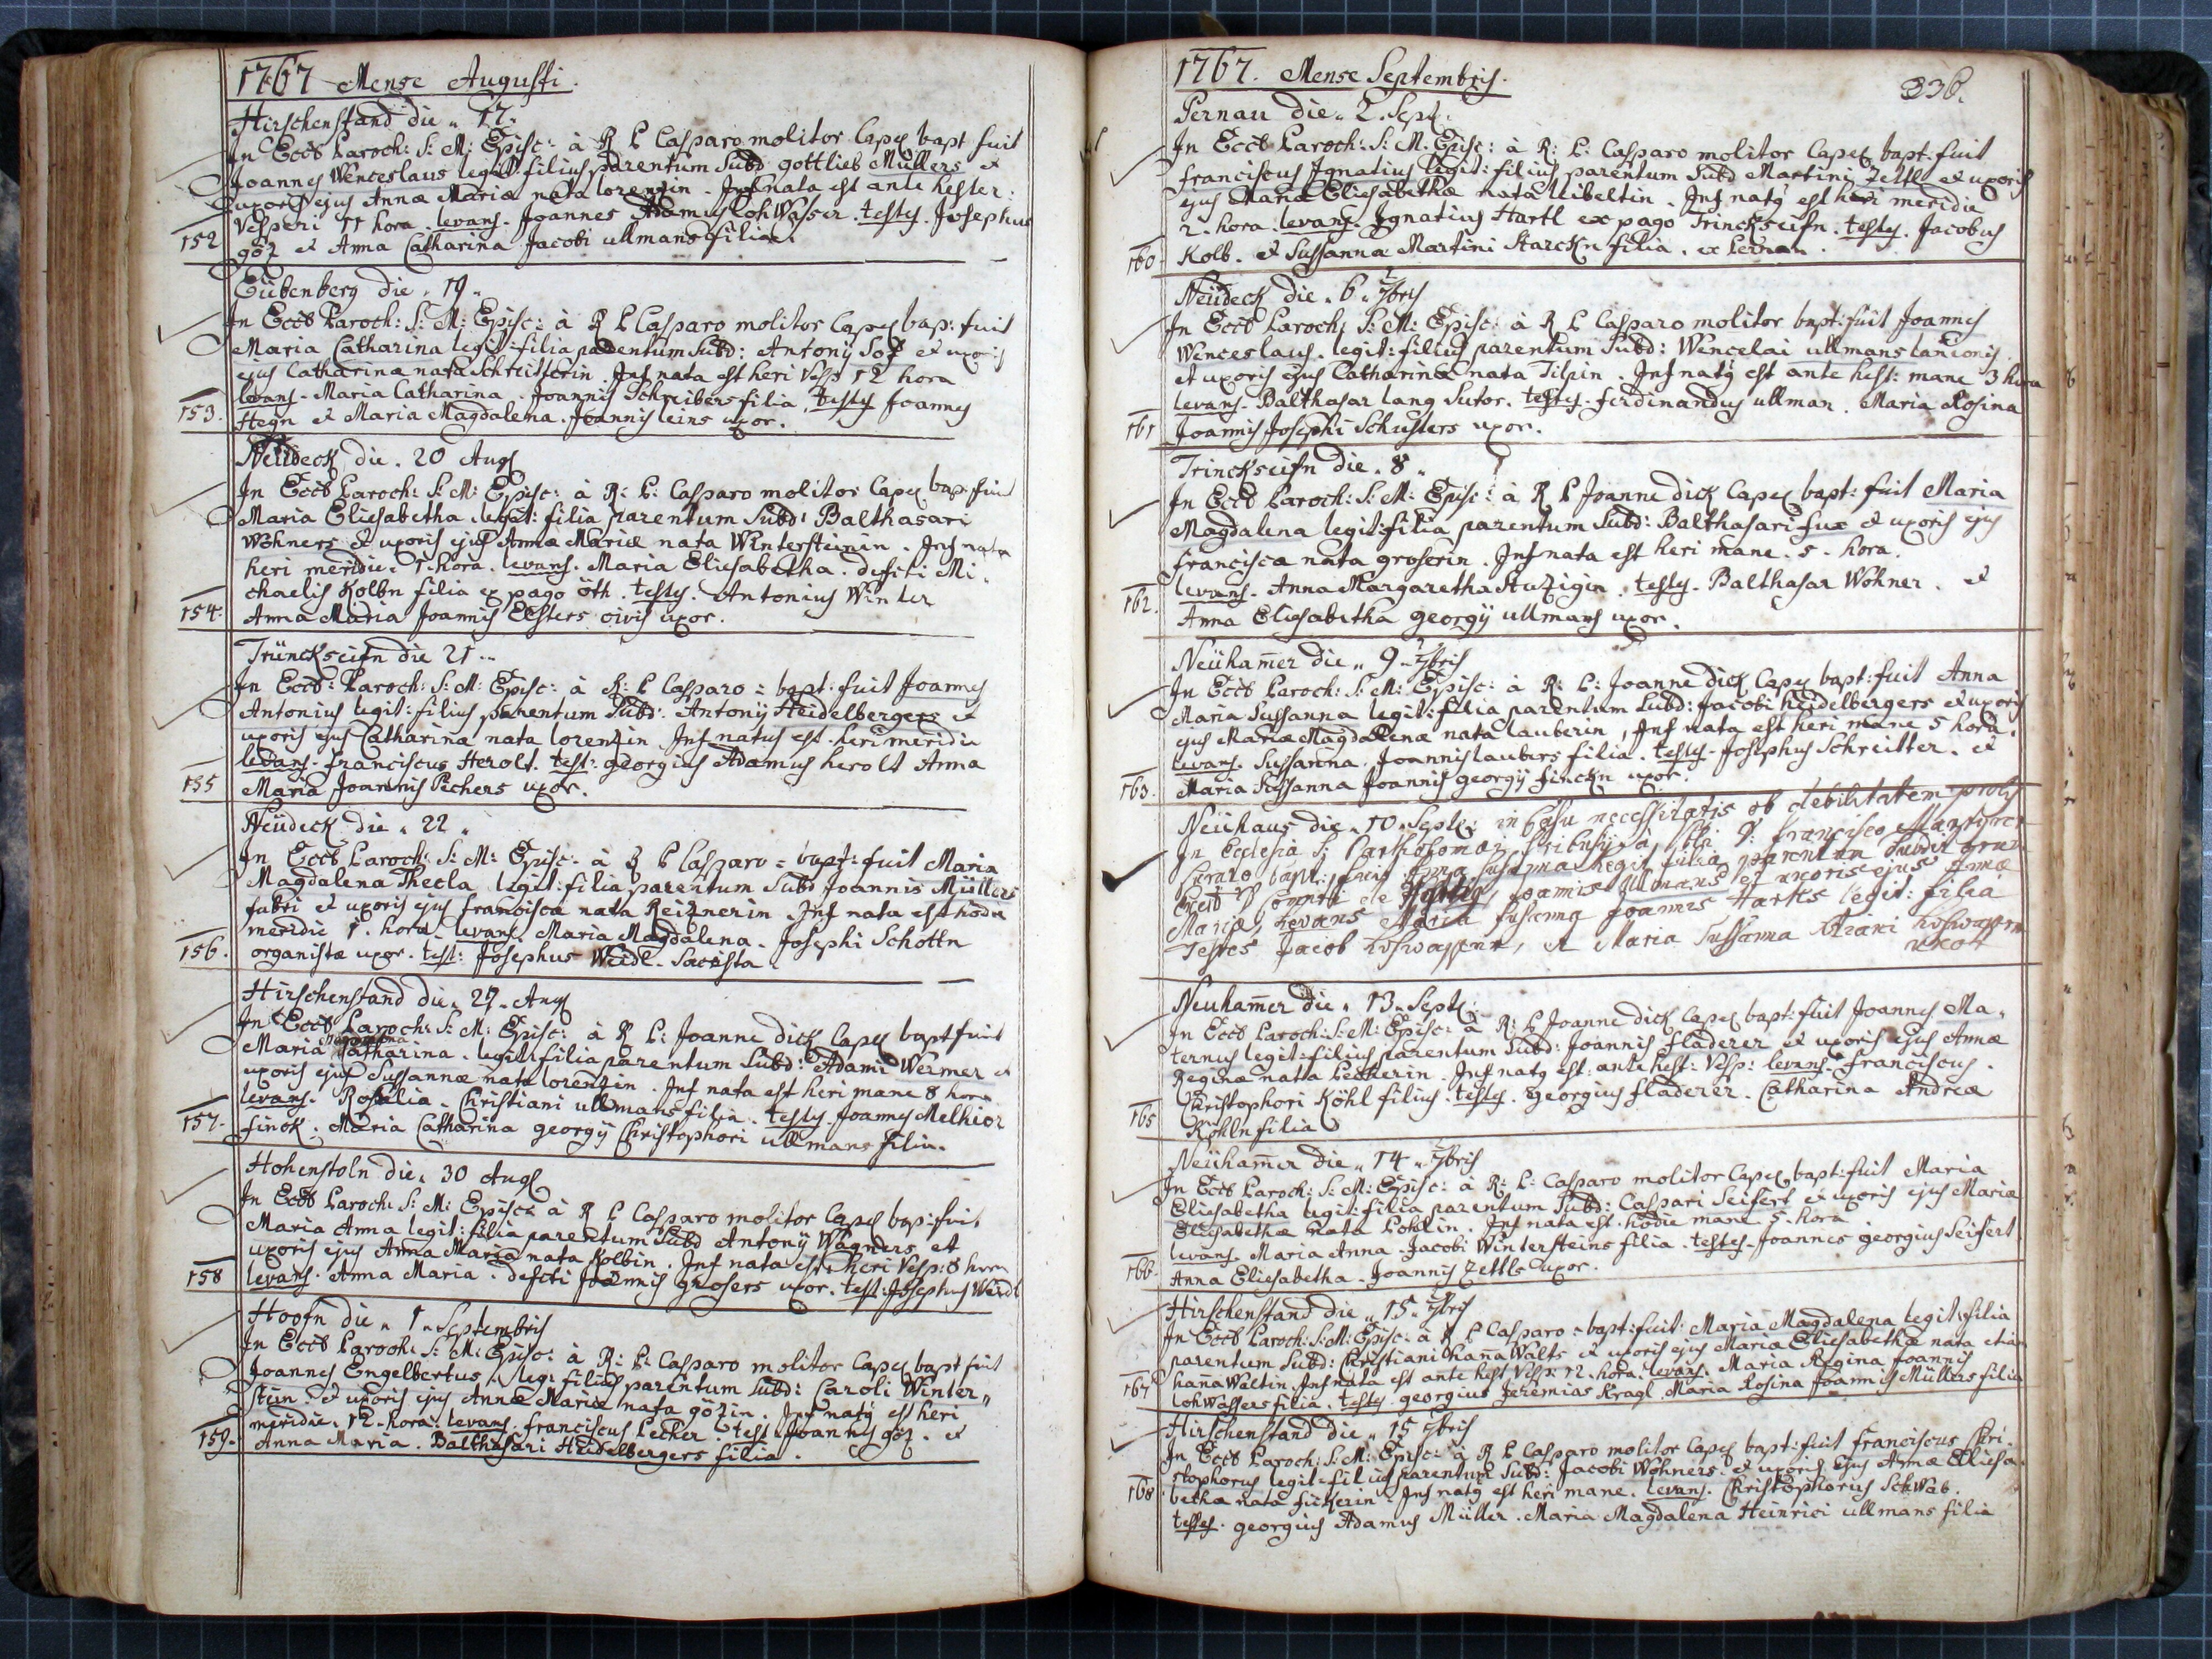 1767 Mense Augusti.
Hirschenstand die „ 17.
In Eccl Paroch: S: M: Episc: à R P Casparo molitor Capel bapt fuit
Joannes Wenceslaus legit: filius parentum Subd gottlieb Müllers et
uxoris ejus Annæ Mariæ nata lorenzin. Inf nata est ante hester:
Vesperi 11 hora. levans. Joannes Adamus lohWasser. testes. Josephus
152 göz et Anna Catharina Jacobi ullmans filiæ.
Eübenberg die „ 19 „
In Eccl Paroch: S: M: Episc: à R P Casparo molitor Capel bap: fuit
Maria Catharina legit: filia parentum Subd: Antonij Soz et uxoris
ejus Catharina nata Schreitterin. Inf nata est heri Vesp 12 hora
levans. Maria Catharina. Joannis Schreibers filia. testes Joannes
153. Hegn et Maria Magdalena. Joannis leins uxor.
Neüdeck die. 20 Aug
In Eccl Paroch: S: M: Episc: à R: P: Casparo molitor Capel bap: fuit
Maria Eliesabetha. legit: filia parentum Subd: Balthasari
Wohners et uxoris ejus Annæ Mariæ nata Wintersteinin. Inf nata
heri meridie. 1. hora. levans. Maria Eliesabetha. defiti Mi„
chaelis Kolbn filia ex pago öth. testes. Antonius Winter
154. Anna Maria Joannis Elsters civis uxor.
Trünckseifn die 21 „
In Eccl: Paroch: S: M: Episc: à R: P Casparo = bapt: fuit Joannes
Antonius legit: filius parentum Subd: Antonij Heidelbergers et
uxoris ejus Catharina nata lorenzin. Inf natus est. heri meridie
levans. franciscus Herolt. test: georgius Adamus herolt Anna
155 Maria Joannis Pechers uxor.
Neüdeck die „ 22 „
In Eccl Paroch: S: M: Episc: à R P Casparo = bapt: fuit Maria
Magdalena Thecla legit: filia parentum Subd Joannis Müllers
fabri et uxoris ejus francisca nata Reiznerin. Inf nata est hodie
meridie 1. hora. levans. Maria Magdalena. Josephi Schottn
156. organistæ uxor. test: Josephus Weidl. Sacrista.
Hirschenstand die „ 27. Aug
In Eccl Paroch: S: M: Episc: à R P: Joanne dick Capel bapt fuit
Maria Catharina. legit: filia parentum Subd: Adami Wermer et
uxoris ejus Sussannæ nata lorenzin. Inf nata est heri mane 8 hora
levans. Rosalia. Christiani ullmans filia. testes. Joannes Melhior
157. finck. Maria Catharina georgij Christophori ullmans filia.
Hohenstoln die „ 30 Aug
In Eccl Paroch: S: M: Episc: à R P Casparo molitor Capel bap: fuit
Maria Anna legit: filia parentum Subd Antonij Wagners et
uxoris ejus Anna Maria nata Kolbin. Inf nata est heri Vesp: 8 hora
158 levans. Anna Maria. defiti Joannis grosers uxor. test: Josephus Weidl
Hoofn die „ 1 „ Septembris
In Eccl Paroch: S: M: Episc: à R: P: Casparo molitor Capel bapt fuit
Joannes Engelbertus: leg: filius parentum Subd: Caroli Winter„
stein. et uxoris ejus Annæ Mariæ nata gözin. Inf natus est heri
meridie. 12. hora. levans. franciscus Pecher. test Joannes göz. et
159. Anna Maria. Balthasari Heidelbergers filia.
1767. Mense Septembris.
336.
Pernau die „ 2. Sept.
In Eccl Paroch: S: M: Episc: à R: P: Casparo molitor Capel bapt: fuit
franciscus Ignatius legit: filius parentum Subd Martini Zettl et uxoris
ejus Maria Eliesabethæ nata Leibeltin. Inf natus est heri meridie
2. hora. levans. Ignatius Hartl ex pago Trinckseifn. testes. Jacobus
160 Kolb. et Sussanna Martini Starckn filia. ex Pernau.
Neüdeck die „ 6 „ 7bris
In Eccl Paroch: S: M: Episc: à R P Casparo molitor bapt: fuit Joannes
Wenceslaus. legit: filius parentum Subd: Wencelai ullmans lanionis
et uxoris ejus Catharinæ nata Tilpin. Inf natus est ante hest: mane 3 hora
levans. Balthasar lang Sutor. testes. ferdinandus ullman. Maria Rosina
161 Joannis Josephi Schusters uxor.
Trinckseifn die „ 8 „
In Eccl Paroch: S: M: Episc: à R P Joanne dick Capel bapt: fuit Maria
Magdalena legit: filia parentum Subd: Balthasari fux et uxoris ejus
francisca nata groserin. Inf nata est heri mane. 5. hora.
levans. Anna Margaretha Stuzigin. testes. Balthasar Wohner. et
162. Anna Eliesabetha georgij ullmans uxor.
Neühamer die „ 9 „ 7bris
In Eccl Paroch: S: M: Episc: à R: P: Joanne dick Capel bapt: fuit Anna
Maria Sussanna legit: filia parentum Subd: Jacobi heidelbergers et uxoris
ejus Mariæ Magdalenæ nata lauberin, Inf nata est heri mane 5 hora.
levans. Sussanna. Joannis laubers filia. testes. Josephus Schreitter. et
163. Maria Sussanna Joannis georgij finckn uxor.
Neühaus die „ 10 „ Sept: in Casu necessitatis ob debilitatem prolis
In Ecclesia S: Bartholomæi à Francisco
bapt: fuit Anna Susanna legit: filia parentum Subd:
Joannis Ullmans et uxoris ejus Annæ
Mariæ, Levans Maria Susanna Joannis Harts legit: filia
Testes Jacob Lohwasser, et Maria Sussanna
uxor
Neuhamer die „ 13. Sept.
In Eccl Paroch: S: M: Episc: à R: P Joanne dick Capel bapt: fuit Joannes Ma„
ternus legit: filius parentum Subd: Joannis fladerer et uxoris ejus Annæ
Reginæ nata Pecherin. Inf natus est: ante hest: Vesp: levans. franciscus.
Christophori Köhl filius. testes. georgius fladerer. Catharina Andreæ
165 Köhln filia
Neühamer die „ 14 „ 7bris
In Eccl Paroch: S: M: Episc: à R: P: Casparo molitor Capel bapt: fuit Maria
Eliesabetha legit: filia parentum Subd: Caspari Seifert et uxoris ejus Mariæ
Eliesabethæ nata Pohlin. Inf nata est. hodie mane 5. hora
levans. Maria Anna. Jacobi Wintersteins filia. testes. Joannes georgius Seifert
166. Anna Eliesabetha. Joannis Zettls uxor.
Hirschenstand die „ 15 „ 7bris
In Eccl Paroch: S: M: Episc: à R P Casparo = bapt: fuit: Maria Magdalena legit: filia
parentum Subd: Christiani hañaWalts et uxoris ejus Maria Eliesabethæ nata etiam
hañaWaltin. Inf nata est ante hest Vesp: 12. hora. levans. Maria Regina Joannis
167 lohWassers filia. testes. georgius Jeremias Kragl. Maria Rosina Joannis Müllers filia
Hirschenstand die „ 15 7bris
In Eccl Paroch: S: M: Episc: à R P Casparo molitor Capel bapt: fuit franciscus Chri„
stophorus legit: filius parentum Subd: Jacobi Wohners. et uxoris ejus Annæ Eliesa„
168 bethæ nata fickerin. Inf natus est heri mane. levans. Christophorus Schwab.
testes. georgius Adamus Müller. Maria Magdalena Heinrici ullmans filia